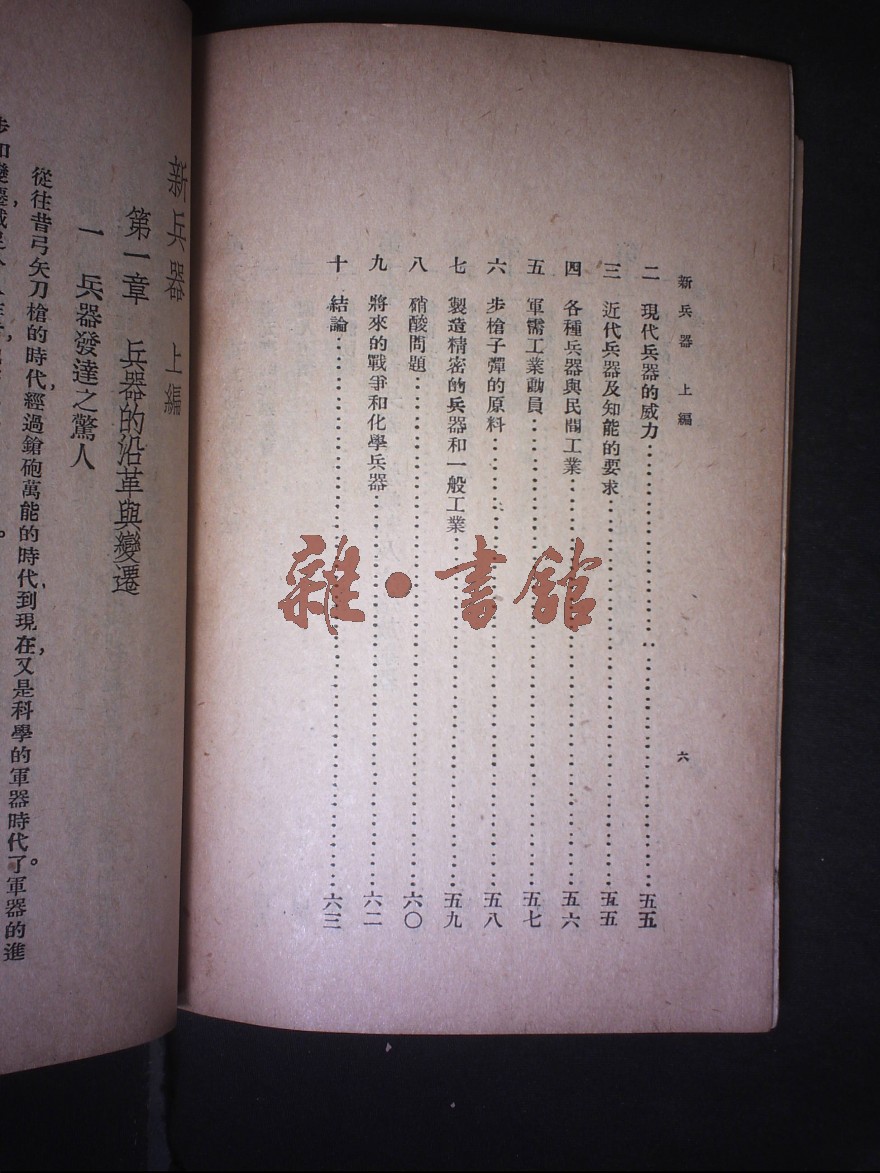 新兵器 上編
六
二 現代兵器的威力……五五
三 近代兵器及知能的要求……五五
四 各種兵器與民間工業……五六
五 軍需工業動員……五七
六 步槍子彈的原料……五八
七 製造精密的兵器和一般工業……五九
八 硝酸問題……六〇
九 將來的戰爭和化學兵器……六二
十 結論……六三
雜·書館
新兵器 上編
第一章 兵器的沿革與變遷
一 兵器發達之驚人
從往昔弓矢刀槍的時代,經過鎗砲萬能的時代,到現在,又是科學的軍器時代了。軍器的進
步和變遷,